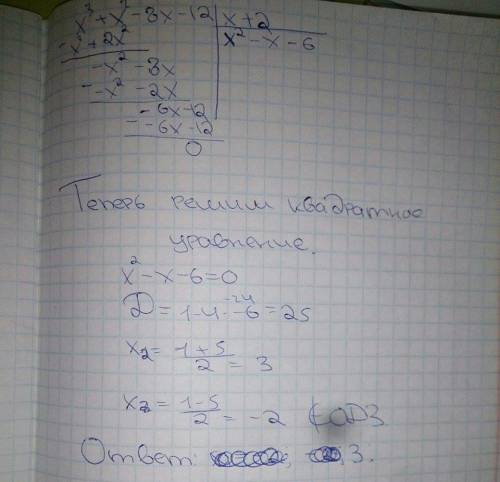 x³ + x² - 8x - 12 | x + 2
- x³ + 2x² | x² - x - 6
- x² - 8x
- - x² - 2x
- 6x - 12
- - 6x - 12
0
Теперь решим квадратное
уравнение.
x² - x - 6 = 0
D = 1 - 4 · -6 = 25
-24
x₂ = 1 + 5 / 2 = 3
x₂ = 1 - 5 / 2 = -2 ОДЗ
Ответ: 3.